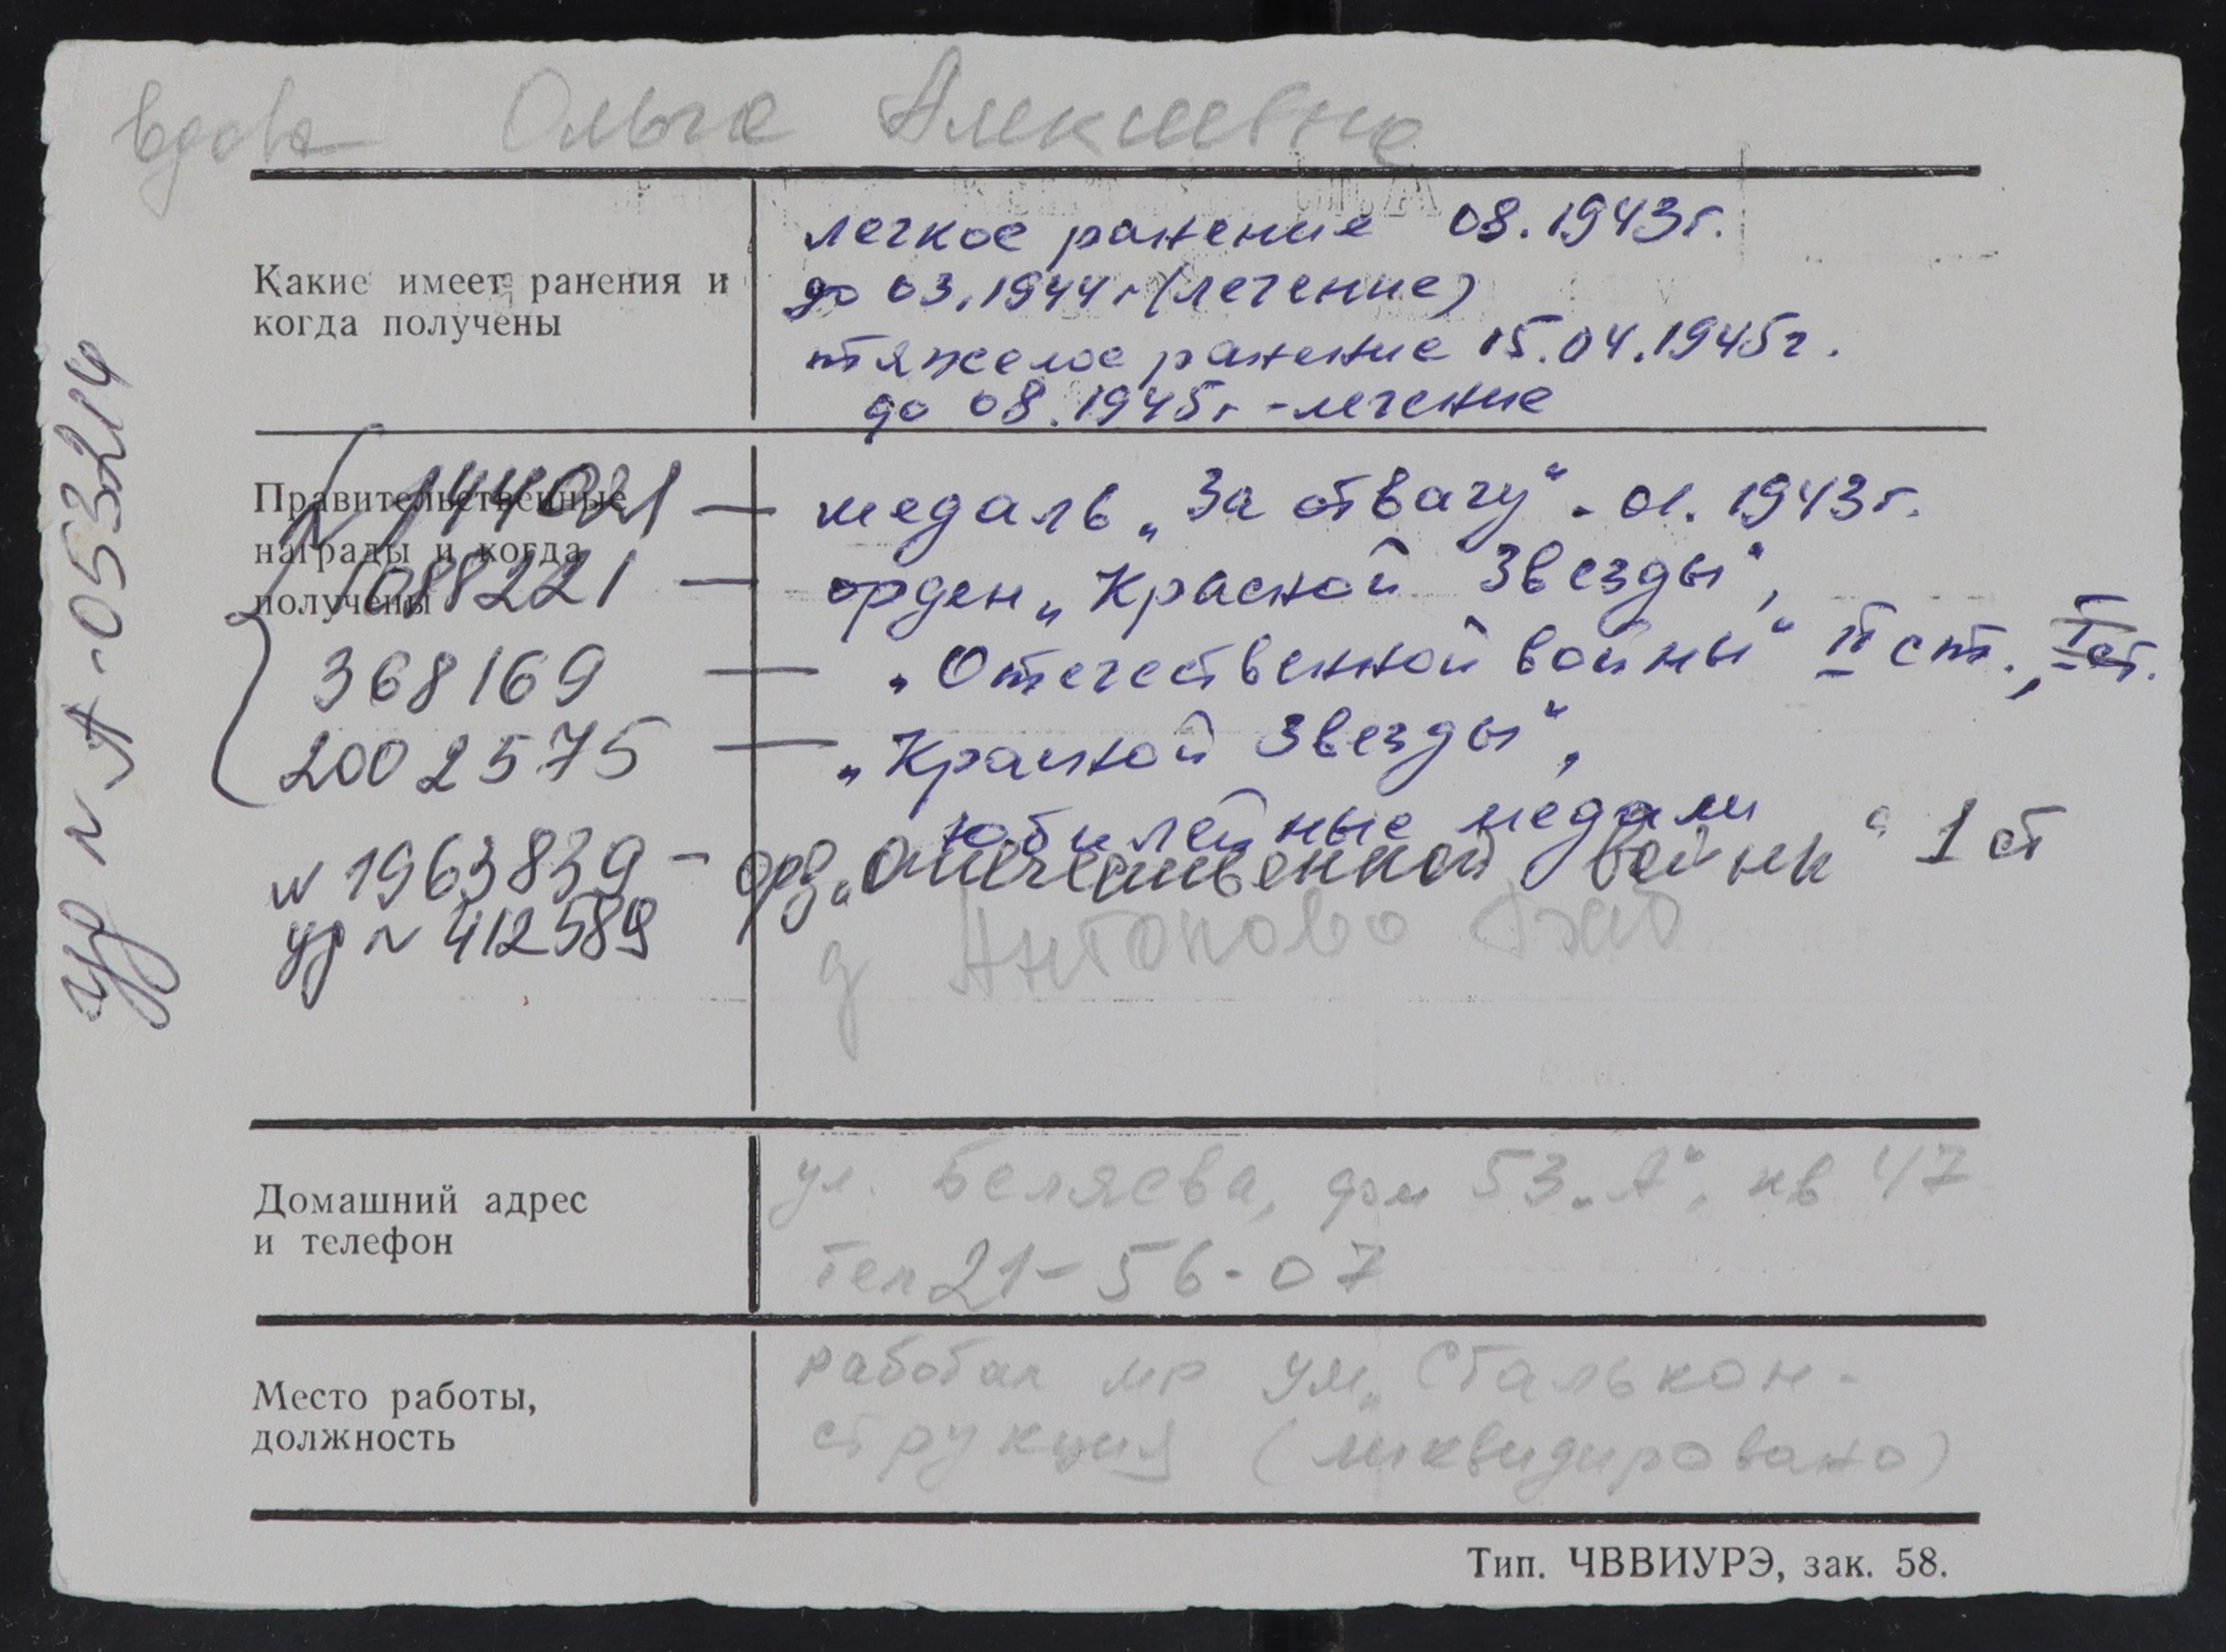 вдова Ольга Алексеевна
Какие имеет ранения и
когда получены
легкое ранение 08.1943г.
до 03.1944г (лечение)
тяжелое ранение 15.04.1945г.
до 08.1945г - лечение
уд № А-053214
Правительственные
награды и когда
получены
№ 144021 — медаль „За отвагу" - 01.1943г.
1088221 — орден „Красной Звезды",
368169 — „Отечественной войны" II ст., I ст.
2002575 — „Красной Звезды",
юбилейные медали
№ 1963839 - орд. „Отечественной войны" 1 ст
уд № 412589
д Антоново
Домашний адрес
и телефон
ул. Беляева, дом 53 „А", кв 47
тел 21-56-07
Место работы,
должность
работал УМ „Сталькон-
струкция (ликвидировано)
Тип. ЧВВИУРЭ, зак. 58.